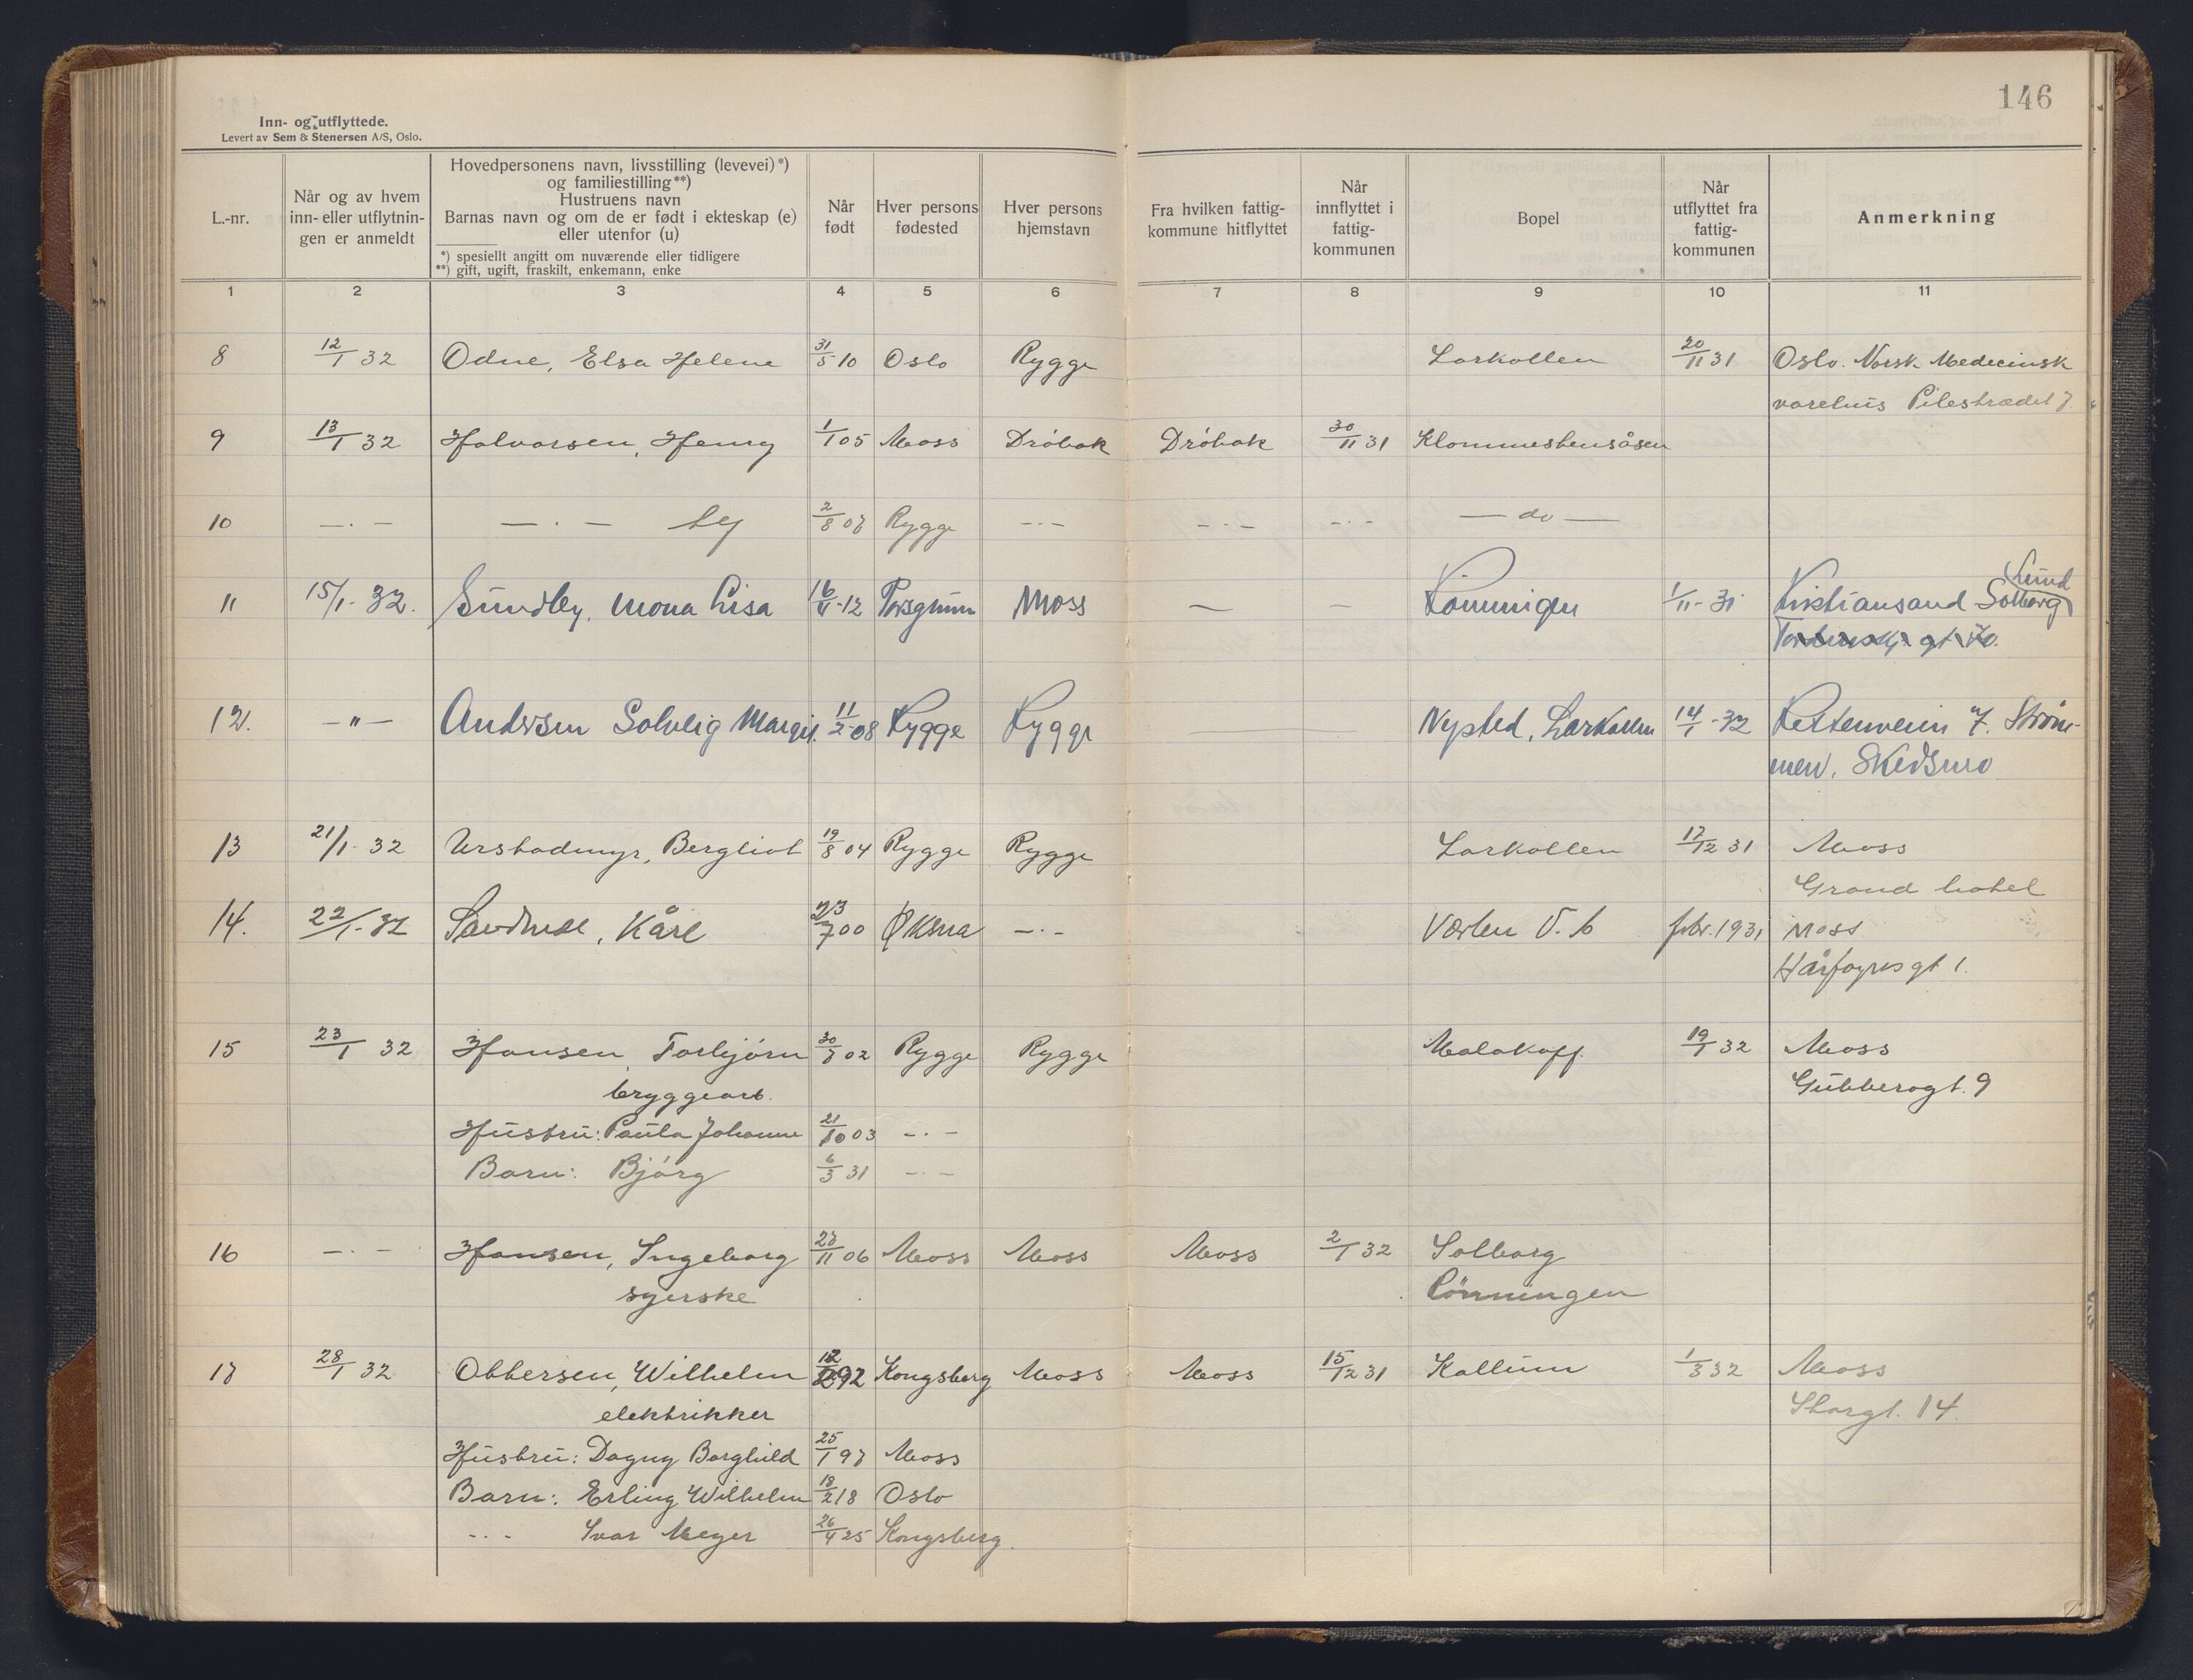 146
Inn- og utflyttede.
Levert av Sem & Stenersen A/S, Oslo.
L.-nr.
Når og av hvem
inn- eller utflytnin-
gen er anmeldt
Hovedpersonens navn, livsstilling (levevei)*)
og familiestilling**)
Hustruens navn
Barnas navn og om de er født i ekteskap (e)
eller utenfor (u)
*) spesiellt angitt om nuværende eller tidligere
**) gift, ugift, fraskilt, enkemann, enke
Når
født
Hver persons
fødested
Hver persons
hjemstavn
Fra hvilken fattig-
kommune hitflyttet
Når
innflyttet i
fattig-
kommunen
Bopel
Når
utflyttet fra
fattig-
kommunen
Anmerkning
1 2 3 4 5 6 7 8 9 10 11
8 12/1 32 Odne, Elsa Helene 31/5 10 Oslo Rygge Larkollen 20/11 31 Oslo. Norsk Medecinsk
varehus Pilestrædet 7
9 13/1 32 Halvorsen, Henry 1/1 05 Moss Drøbak Drøbak 30/11 31 Klommestensåsen
10 — . — — . — Ly 2/8 07 Rygge - . - - . - - . - — do —
11 15/1- 32. Sundby, Mona Lisa 16/11-12 Porsgrunn Moss — — Rönningen 1/11- 31 Kristiansand Solborg
Lund
gt. 70.
12. — " — Andersen Solveig Margit. 11/2-08 Rygge Rygge Nysted, Larkollen 14/1-32 7. Strøm-
men, Skedsmo
13 21/1- 32 Urstadmyr, Bergliot 19/8 04 Rygge Rygge Larkollen 17/12 31 Moss
Grand hotel
14. 22/1-32 Kåre 23/7 00 Øksna — . — Værlen V. 6 febr. 1931 Moss
Hårfagresgt 1.
15 23/1 32 Hansen, Torbjørn 30/7 02 Rygge Rygge Malakoff 19/1 32 Moss
bryggearb. Gubberogt. 9
Hustru: Paula Johanne 21/10 03 — . —
Barn: Bjørg 6/3 31 — . —
16 — . — Hansen, Ingeborg 27/11 06 Moss Moss Moss 2/1 32 Solborg
syerske Rönningen
17 28/1 32 Obbersen, Wilhelm 12/2 92 Kongsberg Moss Moss 15/12 31 Kallum 1/3 32 Moss
elektrikker Storgt. 14
Hustru: Dagny Borghild 25/1 97 Moss
Barn: Erling Wilhelm 18/2 18 Oslo
- . - Ivar Meyer 26/4 25 Kongsberg.